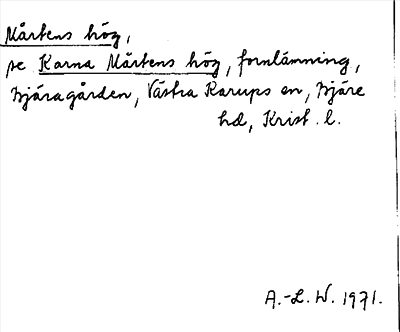 Mårtens hög,
se Karna Mårtens hög, fornlämning,
Bjäragården, Västra Karups sn, Bjäre
hd, Krist. l.
A.-L. W. 1971.